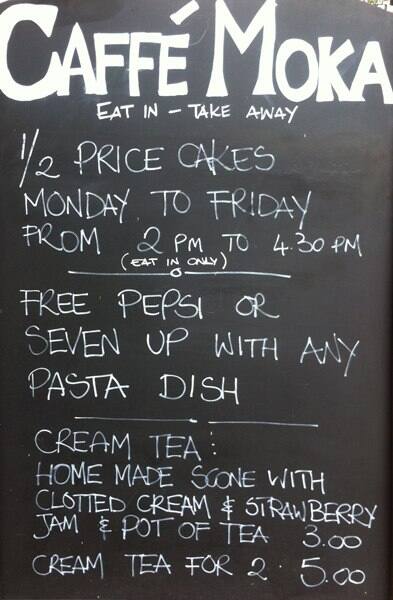 CAFFÉ MOKA
EAT IN - TAKE AWAY
1/2 PRICE CAKES
MONDAY TO FRIDAY
FROM 2 PM TO 4.30 PM
(EAT IN ONLY)
FREE PEPSI OR
SEVEN UP WITH ANY
PASTA DISH
CREAM TEA:
HOME MADE SCONE WITH
CLOTTED CREAM & STRAWBERRY
JAM & POT OF TEA 3.00
CREAM TEA FOR 2. 5.00